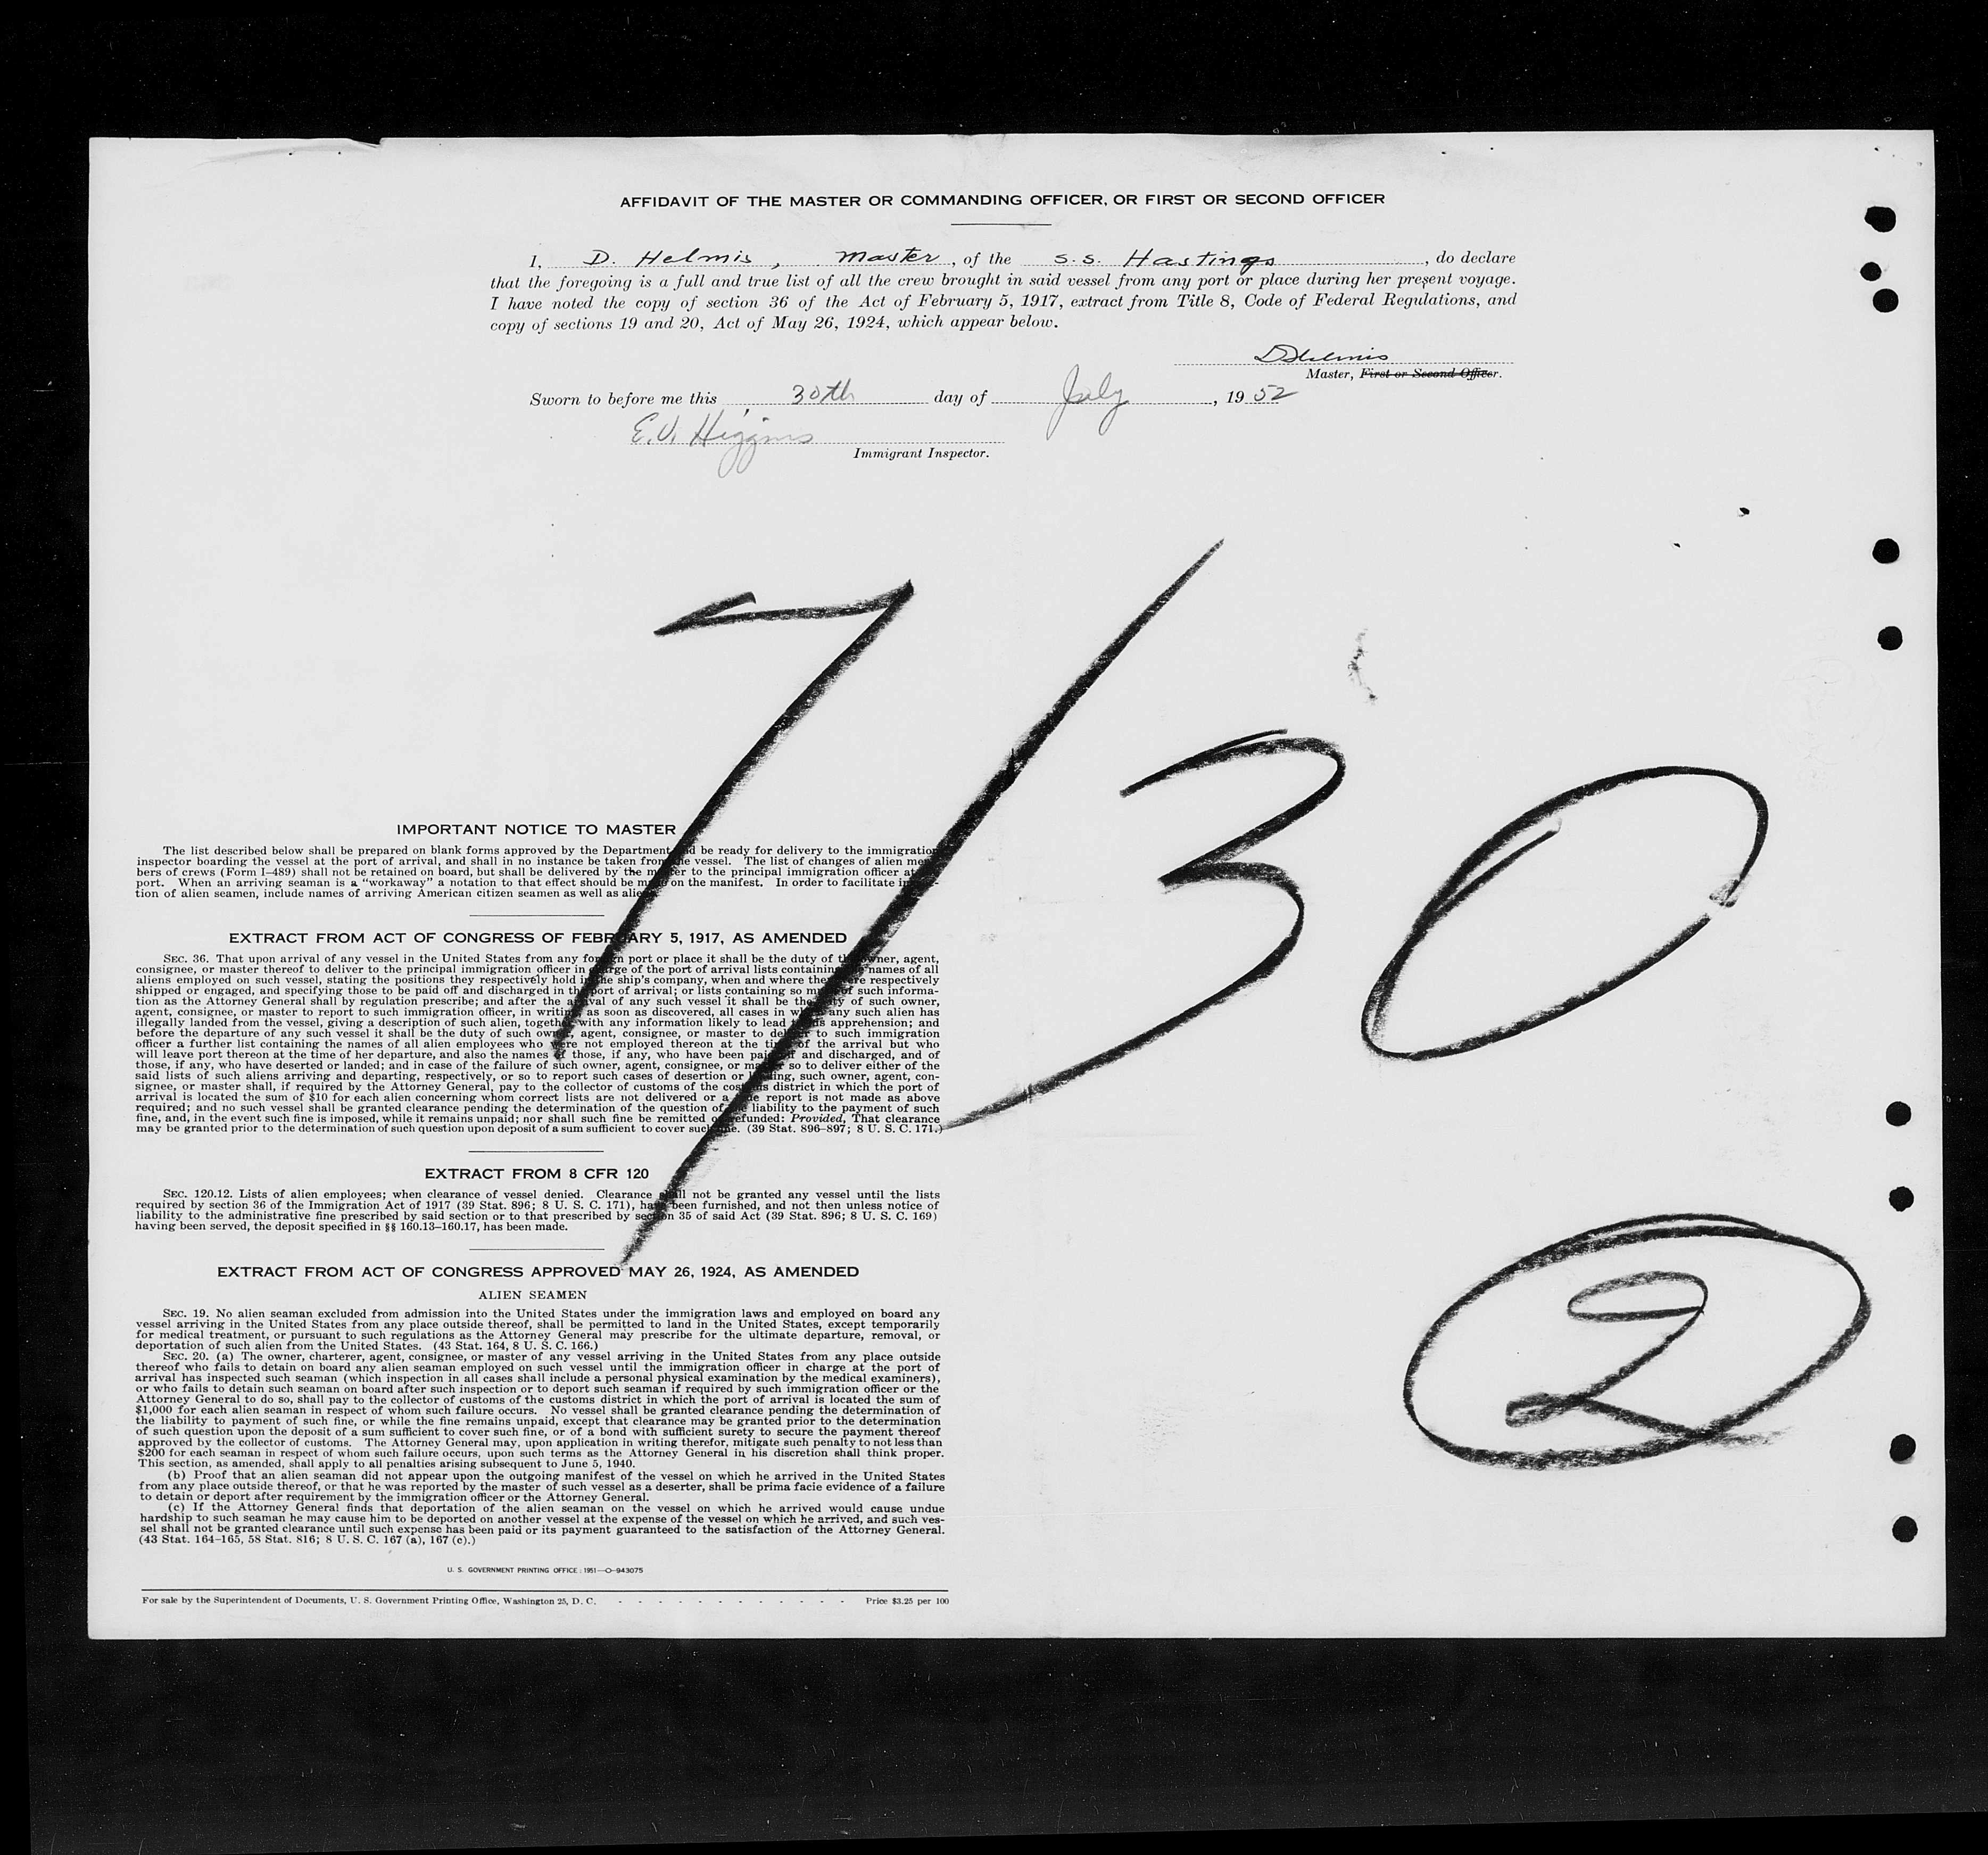 AFFIDAVIT OF THE MASTER OR COMMANDING OFFICER, OR FIRST OR SECOND OFFICER
I, D. Helmis, Master, of the S.S. Hastings, do declare
that the foregoing is a full and true list of all the crew brought in said vessel from any port or place during her present voyage.
I have noted the copy of section 36 of the Act of February 5, 1917, extract from Title 8, Code of Federal Regulations, and
copy of sections 19 and 20, Act of May 26, 1924, which appear below.
DHelmis
Master, First or Second Officer.
Sworn to before me this 30th day of July, 1952
E.V. Higgins
Immigrant Inspector.
7/30
IMPORTANT NOTICE TO MASTER
The list described below shall be prepared on blank forms approved by the Department and be ready for delivery to the immigration
inspector boarding the vessel at the port of arrival, and shall in no instance be taken from the vessel. The list of changes of alien mem-
bers of crews (Form I–489) shall not be retained on board, but shall be delivered by the master to the principal immigration officer at
port. When an arriving seaman is a "workaway" a notation to that effect should be made on the manifest. In order to facilitate inspec-
tion of alien seamen, include names of arriving American citizen seamen as well as aliens.
EXTRACT FROM ACT OF CONGRESS OF FEBRUARY 5, 1917, AS AMENDED
SEC. 36. That upon arrival of any vessel in the United States from any foreign port or place it shall be the duty of the owner, agent,
consignee, or master thereof to deliver to the principal immigration officer in charge of the port of arrival lists containing the names of all
aliens employed on such vessel, stating the positions they respectively hold in the ship's company, when and where they were respectively
shipped or engaged, and specifying those to be paid off and discharged in the port of arrival; or lists containing so much of such informa-
tion as the Attorney General shall by regulation prescribe; and after the arrival of any such vessel it shall be the duty of such owner,
agent, consignee, or master to report to such immigration officer, in writing, as soon as discovered, all cases in which any such alien has
illegally landed from the vessel, giving a description of such alien, together with any information likely to lead to his apprehension; and
before the departure of any such vessel it shall be the duty of such owner, agent, consignee, or master to deliver to such immigration
officer a further list containing the names of all alien employees who were not employed thereon at the time of the arrival but who
will leave port thereon at the time of her departure, and also the names of those, if any, who have been paid off and discharged, and of
those, if any, who have deserted or landed; and in case of the failure of such owner, agent, consignee, or master so to deliver either of the
said lists of such aliens arriving and departing, respectively, or so to report such cases of desertion or landing, such owner, agent, con-
signee, or master shall, if required by the Attorney General, pay to the collector of customs of the customs district in which the port of
arrival is located the sum of $10 for each alien concerning whom correct lists are not delivered or a true report is not made as above
required; and no such vessel shall be granted clearance pending the determination of the question of the liability to the payment of such
fine, and, in the event such fine is imposed, while it remains unpaid; nor shall such fine be remitted or refunded: Provided, That clearance
may be granted prior to the determination of such question upon deposit of a sum sufficient to cover such fine. (39 Stat. 896–897; 8 U. S. C. 171.)
EXTRACT FROM 8 CFR 120
SEC. 120.12. Lists of alien employees; when clearance of vessel denied. Clearance shall not be granted any vessel until the lists
required by section 36 of the Immigration Act of 1917 (39 Stat. 896; 8 U. S. C. 171), have been furnished, and not then unless notice of
liability to the administrative fine prescribed by said section or to that prescribed by section 35 of said Act (39 Stat. 896; 8 U. S. C. 169)
having been served, the deposit specified in §§ 160.13–160.17, has been made.
EXTRACT FROM ACT OF CONGRESS APPROVED MAY 26, 1924, AS AMENDED
ALIEN SEAMEN
SEC. 19. No alien seaman excluded from admission into the United States under the immigration laws and employed on board any
vessel arriving in the United States from any place outside thereof, shall be permitted to land in the United States, except temporarily
for medical treatment, or pursuant to such regulations as the Attorney General may prescribe for the ultimate departure, removal, or
deportation of such alien from the United States. (43 Stat. 164, 8 U. S. C. 166.)
SEC. 20. (a) The owner, charterer, agent, consignee, or master of any vessel arriving in the United States from any place outside
thereof who fails to detain on board any alien seaman employed on such vessel until the immigration officer in charge at the port of
arrival has inspected such seaman (which inspection in all cases shall include a personal physical examination by the medical examiners),
or who fails to detain such seaman on board after such inspection or to deport such seaman if required by such immigration officer or the
Attorney General to do so, shall pay to the collector of customs of the customs district in which the port of arrival is located the sum of
$1,000 for each alien seaman in respect of whom such failure occurs. No vessel shall be granted clearance pending the determination of
the liability to payment of such fine, or while the fine remains unpaid, except that clearance may be granted prior to the determination
of such question upon the deposit of a sum sufficient to cover such fine, or of a bond with sufficient surety to secure the payment thereof
approved by the collector of customs. The Attorney General may, upon application in writing therefor, mitigate such penalty to not less than
$200 for each seaman in respect of whom such failure occurs, upon such terms as the Attorney General in his discretion shall think proper.
This section, as amended, shall apply to all penalties arising subsequent to June 5, 1940.
(b) Proof that an alien seaman did not appear upon the outgoing manifest of the vessel on which he arrived in the United States
from any place outside thereof, or that he was reported by the master of such vessel as a deserter, shall be prima facie evidence of a failure
to detain or deport after requirement by the immigration officer or the Attorney General.
(c) If the Attorney General finds that deportation of the alien seaman on the vessel on which he arrived would cause undue
hardship to such seaman he may cause him to be deported on another vessel at the expense of the vessel on which he arrived, and such ves-
sel shall not be granted clearance until such expense has been paid or its payment guaranteed to the satisfaction of the Attorney General.
(43 Stat. 164–165, 58 Stat. 816; 8 U. S. C. 167 (a), 167 (c).)
2
U. S. GOVERNMENT PRINTING OFFICE : 1951—O–943075
For sale by the Superintendent of Documents, U. S. Government Printing Office, Washington 25, D. C. - - - - - - - - - - - - Price $3.25 per 100